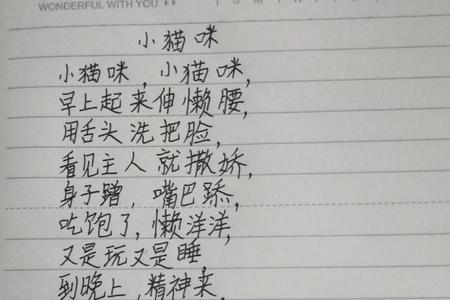 WONDERFUL WITH YOU
小猫咪
小猫咪，小猫咪，
早上起来伸懒腰，
用舌头洗把脸，
看见主人就撒娇，
身子蹭，嘴巴舔，
吃饱了，懒洋洋，
又是玩又是睡，
到晚上，精神来，